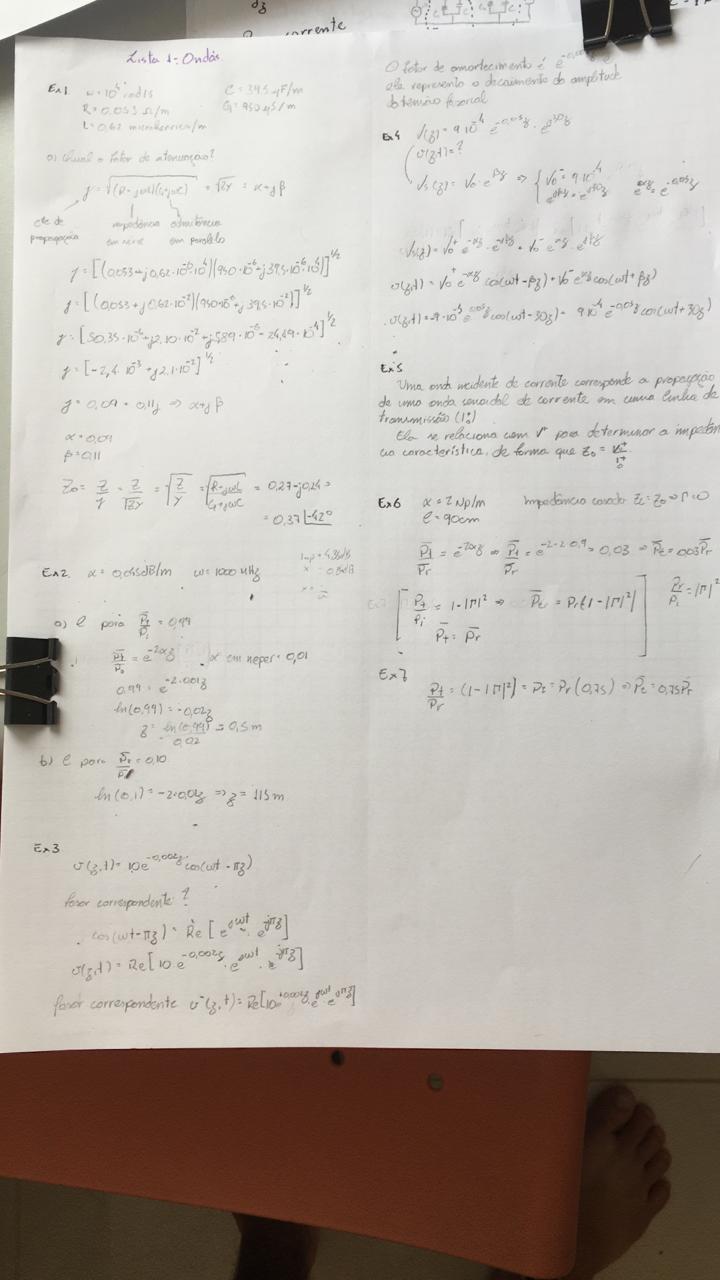 corrente
Lista 1: Ondas
Ex1 ω = 10⁴ rad/s C = 39,5 μF/m
R = 0,053 Ω/m G = 950 μS/m
L = 0,62 microhenries/m
a) Qual o fator de atenuação?
γ = √(R+jωL)(G+jωC) = √ZY = α+jβ
cte de propagação impedância em série admitância em paralelo
γ = [(0,053+j0,62·10⁻⁶·10⁴)(950·10⁻⁶+j39,5·10⁻⁶·10⁴)]^1/2
γ = [(0,053+j0,62·10⁻²)(950·10⁻⁶+j39,5·10⁻²)]^1/2
γ = [50,35·10⁻⁶+j2,10·10⁻²+j5,89·10⁻⁶-24,49·10⁻⁴]^1/2
γ = [-2,4·10⁻³+j2,1·10⁻²]^1/2
γ = 0,09 + 0,11j ⇒ α+jβ
α = 0,09
β = 0,11
Z₀ = Z/γ = Z/√ZY = √Z/Y = √(R+jωL)/(G+jωC) = 0,27-j0,24 =
= 0,37 ∠-42°
Ex2. α = 0,045dB/m ω = 1000 MHz
a) l para P̄t/P̄i = 0,99
= e^-2αz α em neper = 0,01
0,99 = e^-2·0,01z
ln(0,99) = -0,02z
z = ln(0,99)/0,02 = 0,5m
b) l para = 0,10
ln(0,1) = -2·0,01z ⇒ z = 115m
Ex3
v(z,t) = 10e^-0,002z cos(ωt - πz)
fasor correspondente?
cos(ωt-πz) = Re[e^jωt · e^jπz]
v(z,t) = Re[10·e^-0,002z · e^jωt · e^-jπz]
fasor correspondente v⁻(z,t) = Re[10e^+0,002z · e^jωt · e^jπz]
O fator de amortecimento é
ele representa o decaimento da amplitude
da tensão fasorial
Ex4 V(z) = 9·10⁻⁴ e^-0,05z · e^j30z
v(z,t) = ?
Vs(z) = V₀·e^βz ⇒ { V₀⁻ = 9·10⁻⁴
e^jβz = e^j30z e^αz = e^-0,05z
Vs(z) = V₀⁺ e^-αz · e^-jβz + V₀⁻ e^αz · e^jβz
v(z,t) = V₀⁺ e^-αz cos(ωt-βz) + V₀⁻ e^αz cos(ωt+βz)
v(z,t) = 9·10⁻⁴ e^0,05z cos(ωt-30z) = 9·10⁻⁴ e^-0,05z cos(ωt+30z)
Ex5
Uma onda incidente de corrente corresponde a propagação
de uma onda senoidal de corrente em uma linha de
transmissão (I₀⁺)
Ela se relaciona com V⁺ para determinar a impedân-
cia característica, de forma que Z₀ = V₀⁺/I₀⁺
Ex6 α = 2 Np/m Impedância casada Z_L = Z₀ ⇒ Γ = 0
l = 90cm
P̄t/P̄r = e^-2αz ⇒ P̄t/P̄r = e^-2·2·0,9 = 0,03 ⇒ P̄t = 0,03P̄r
P̄t/P̄i = 1-|Γ|² ⇒ P̄t = Pr(1-|Γ|²) Pr/Pi = |Γ|²
P̄t = P̄r
Ex7
P̄t/P̄r = (1-|Γ|²) = Pt = Pr(0,75) ⇒ P̄t = 0,75P̄r